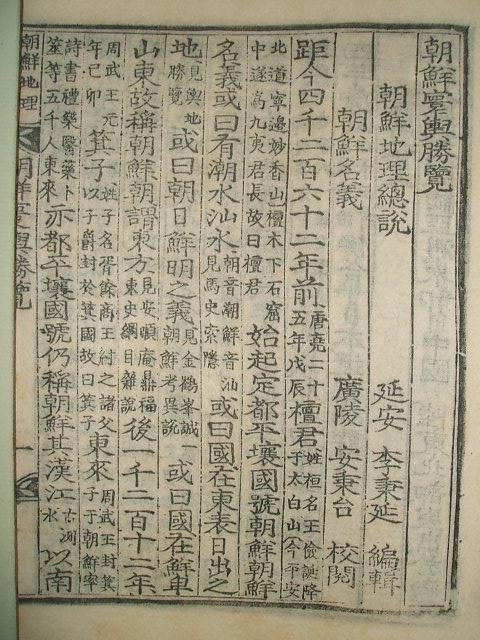 朝鮮寰輿勝覽
朝鮮地理總說 延安 李秉延 編輯
朝鮮名義 廣陵 安秉台 校閱
距今四千二百六十二年前唐堯二十五年戊辰檀君姓桓名王儉誕降于太白山(今平安
北道寧邊妙香山)檀木下石窟中遂爲九夷君長故曰檀君始起定都平壤國號朝鮮朝鮮
名義或曰有潮水汕水朝音潮鮮音汕見馬史索隱或曰國在東表日出之
地見輿地勝覽或曰朝日鮮明之義見金鶴峯誠一朝鮮考異說或曰國在鮮卑
山東故稱朝鮮朝謂東方見安順庵鼎福東史綱目雜說後一千二百十二年
周武王元年己卯箕子姓子名胥餘商王紂之諸父以子爵封於箕國故曰箕子東來周武王封箕子于朝鮮率
詩書禮樂醫藥卜筮等五千人東來亦都平壤國號仍稱朝鮮其漢江古洌水以南
朝鮮地理 朝鮮寰輿勝覽 一